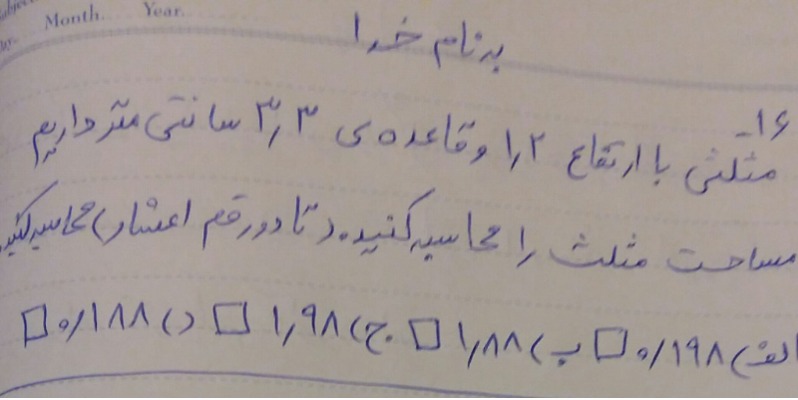 Month. Year.
به نام خدا
۱۶-
مثلثی با ارتفاع ۱٫۲ و قاعده ی ۳٫۳ سانتی متر داریم
مساحت مثلث را محاسبه کنید. (تا دو رقم اعشار) محاسبه کنید.
الف) ۰/۱۹۸ □ ب) ۱٫۸۸ □ ج) ۱٫۹۸ □ د) ۰/۱۸۸ □